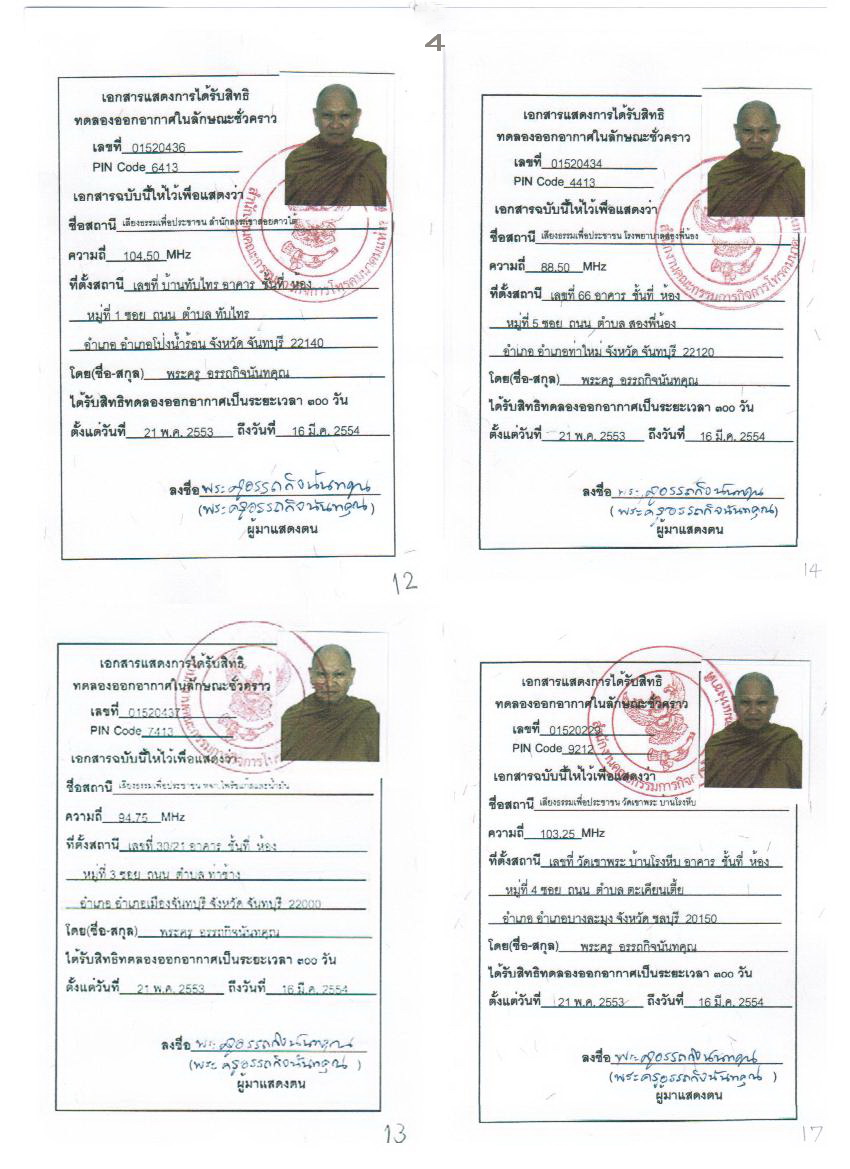 4
เอกสารแสดงการได้รับสิทธิ
ทดลองออกอากาศในลักษณะชั่วคราว
เลขที่ 01520436
PIN Code 6413
เอกสารฉบับนี้ให้ไว้เพื่อแสดงว่า
ชื่อสถานี เสียงธรรมเพื่อประชาชน สำนักสงฆ์เขาสอยดาวใต้
ความถี่ 104.50 MHz
ที่ตั้งสถานี เลขที่ บ้านทับไทร อาคาร ชั้นที่ ห้อง
หมู่ที่ 1 ซอย ถนน ตำบล ทับไทร
อำเภอ อำเภอโป่งน้ำร้อน จังหวัด จันทบุรี 22140
โดย(ชื่อ-สกุล) พระครู อรรถกิจนันทคุณ
ได้รับสิทธิทดลองออกอากาศเป็นระยะเวลา ๓๐๐ วัน
ตั้งแต่วันที่ 21 พ.ค. 2553 ถึงวันที่ 16 มี.ค. 2554
ลงชื่อ พระครูอรรถกิจนันทคุณ
(พระครูอรรถกิจนันทคุณ)
ผู้มาแสดงตน
12
เอกสารแสดงการได้รับสิทธิ
ทดลองออกอากาศในลักษณะชั่วคราว
เลขที่ 01520434
PIN Code 4413
เอกสารฉบับนี้ให้ไว้เพื่อแสดงว่า
ชื่อสถานี เสียงธรรมเพื่อประชาชน โรงพยาบาลสองพี่น้อง
ความถี่ 88.50 MHz
ที่ตั้งสถานี เลขที่ 66 อาคาร ชั้นที่ ห้อง
หมู่ที่ 5 ซอย ถนน ตำบล สองพี่น้อง
อำเภอ อำเภอท่าใหม่ จังหวัด จันทบุรี 22120
โดย(ชื่อ-สกุล) พระครู อรรถกิจนันทคุณ
ได้รับสิทธิทดลองออกอากาศเป็นระยะเวลา ๓๐๐ วัน
ตั้งแต่วันที่ 21 พ.ค. 2553 ถึงวันที่ 16 มี.ค. 2554
ลงชื่อ พระครูอรรถกิจนันทคุณ
(พระครูอรรถกิจนันทคุณ)
ผู้มาแสดงตน
14
เอกสารแสดงการได้รับสิทธิ
ทดลองออกอากาศในลักษณะชั่วคราว
เลขที่ 01520437
PIN Code 7413
เอกสารฉบับนี้ให้ไว้เพื่อแสดงว่า
ชื่อสถานี เสียงธรรมเพื่อประชาชน
ความถี่ 94.75 MHz
ที่ตั้งสถานี เลขที่ 30/21 อาคาร ชั้นที่ ห้อง
หมู่ที่ 3 ซอย ถนน ตำบล ท่าช้าง
อำเภอ อำเภอเมืองจันทบุรี จังหวัด จันทบุรี 22000
โดย(ชื่อ-สกุล) พระครู อรรถกิจนันทคุณ
ได้รับสิทธิทดลองออกอากาศเป็นระยะเวลา ๓๐๐ วัน
ตั้งแต่วันที่ 21 พ.ค. 2553 ถึงวันที่ 16 มี.ค. 2554
ลงชื่อ พระครูอรรถกิจนันทคุณ
(พระครูอรรถกิจนันทคุณ)
ผู้มาแสดงตน
13
เอกสารแสดงการได้รับสิทธิ
ทดลองออกอากาศในลักษณะชั่วคราว
เลขที่ 01520229
PIN Code 9212
เอกสารฉบับนี้ให้ไว้เพื่อแสดงว่า
ชื่อสถานี เสียงธรรมเพื่อประชาชน วัดเขาพระ บ้านโรงหีบ
ความถี่ 103.25 MHz
ที่ตั้งสถานี เลขที่ วัดเขาพระ บ้านโรงหีบ อาคาร ชั้นที่ ห้อง
หมู่ที่ 4 ซอย ถนน ตำบล ตะเคียนเตี้ย
อำเภอ อำเภอบางละมุง จังหวัด ชลบุรี 20150
โดย(ชื่อ-สกุล) พระครู อรรถกิจนันทคุณ
ได้รับสิทธิทดลองออกอากาศเป็นระยะเวลา ๓๐๐ วัน
ตั้งแต่วันที่ 21 พ.ค. 2553 ถึงวันที่ 16 มี.ค. 2554
ลงชื่อ พระครูอรรถกิจนันทคุณ
(พระครูอรรถกิจนันทคุณ)
ผู้มาแสดงตน
17